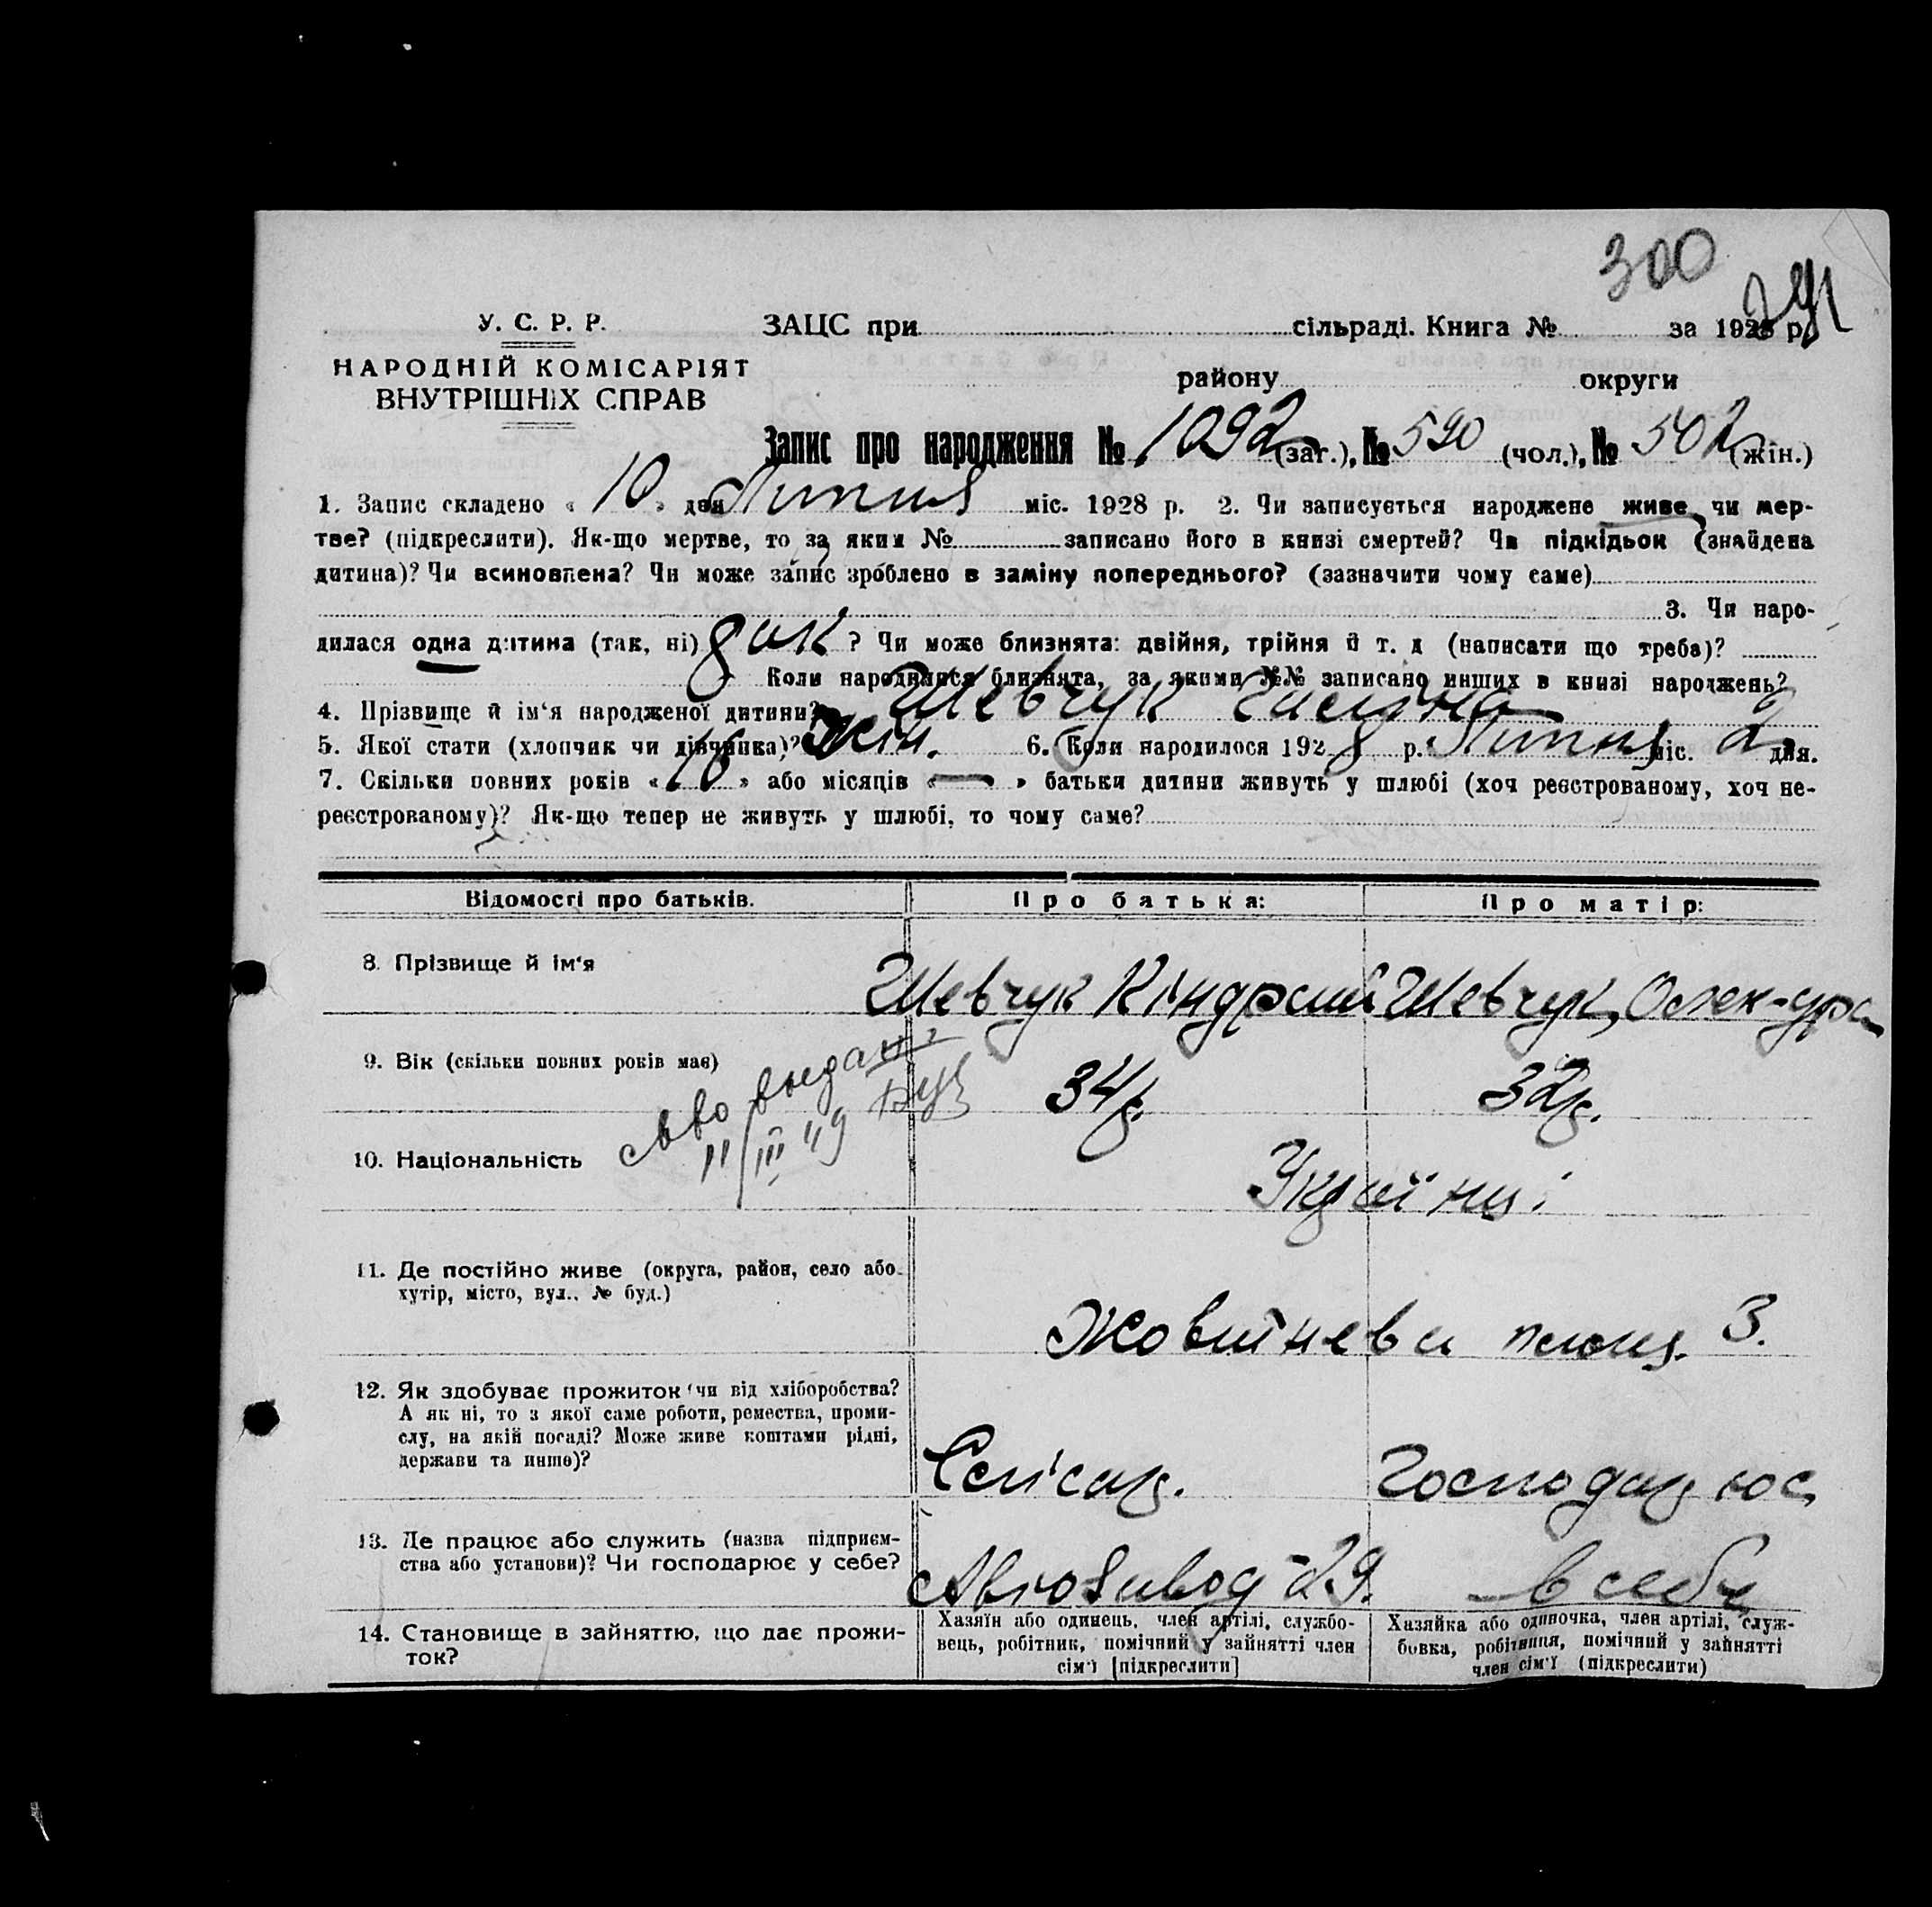 300
291
У. С. Р. Р.
НАРОДНІЙ КОМІСАРІЯТ
ВНУТРІШНІХ СПРАВ
ЗАЦС при сільраді. Книга № за 1928 р.
району округи
Запис про народження № 1092 (заг.), № 590 (чол.), № 502 (жін.)
1. Запис складено « 10 » дня Липня міс. 1928 р. 2. Чи записується народжене живе чи мер-
тве? (підкреслити). Як-що мертве, то за яким № записано його в книзі смертей? Чи підкідьок (знайдена
дитина)? Чи всиновлена? Чи може запис зроблено в заміну попереднього? (зазначити чому саме)
3. Чи наро-
дилася одна дитина (так, ні) так ? Чи може близнята: двійня, трійня й т. д (написати що треба)?
Коли народилися близнята, за якими №№ записано инших в книзі народжень?
4. Прізвище й ім‘я народженої дитини? Шевчук
5. Якої стати (хлопчик чи дівчинка)? жін. 6. Коли народилося 1928 р. Липня міс. 2 дня.
7. Скільки повних років « 16 » або місяців « — » батьки дитини живуть у шлюбі (хоч реєстрованому, хоч не-
реєстрованому)? Як-що тепер не живуть у шлюбі, то чому саме?
Відомості про батьків. Про батька: Про матір:
8. Прізвище й ім‘я Шевчук Кіндрат Шевчук Олек-дра
9. Вік (скільки повних років має) 34р. 32р.
св во выдан
11/III 49
10. Національність Українці
11. Де постійно живе (округа, район, село або
хутір, місто, вул., № буд.)
Жовтнева площ. 3.
12. Як здобуває прожиток (чи від хліборобства?
А як ні, то з якої саме роботи, ремества, проми-
слу, на якій посаді? Може живе коштами рідні,
держави та инше)?
Слюсар. Господарює
13. Де працює або служить (назва підприєм-
ства або установи)? Чи господарює у себе?
Автозавод -29. в себе
14. Становище в зайняттю, що дає прожи-
ток?
Хазяїн або одинець, член артілі, службо-
вець, робітник, помічний у зайнятті член
сім‘ї [підкреслити]
Хазяйка або одиночка, член артілі, служ-
бовка, робітниця, помічний у зайнятті
член сім‘ї (підкреслити)